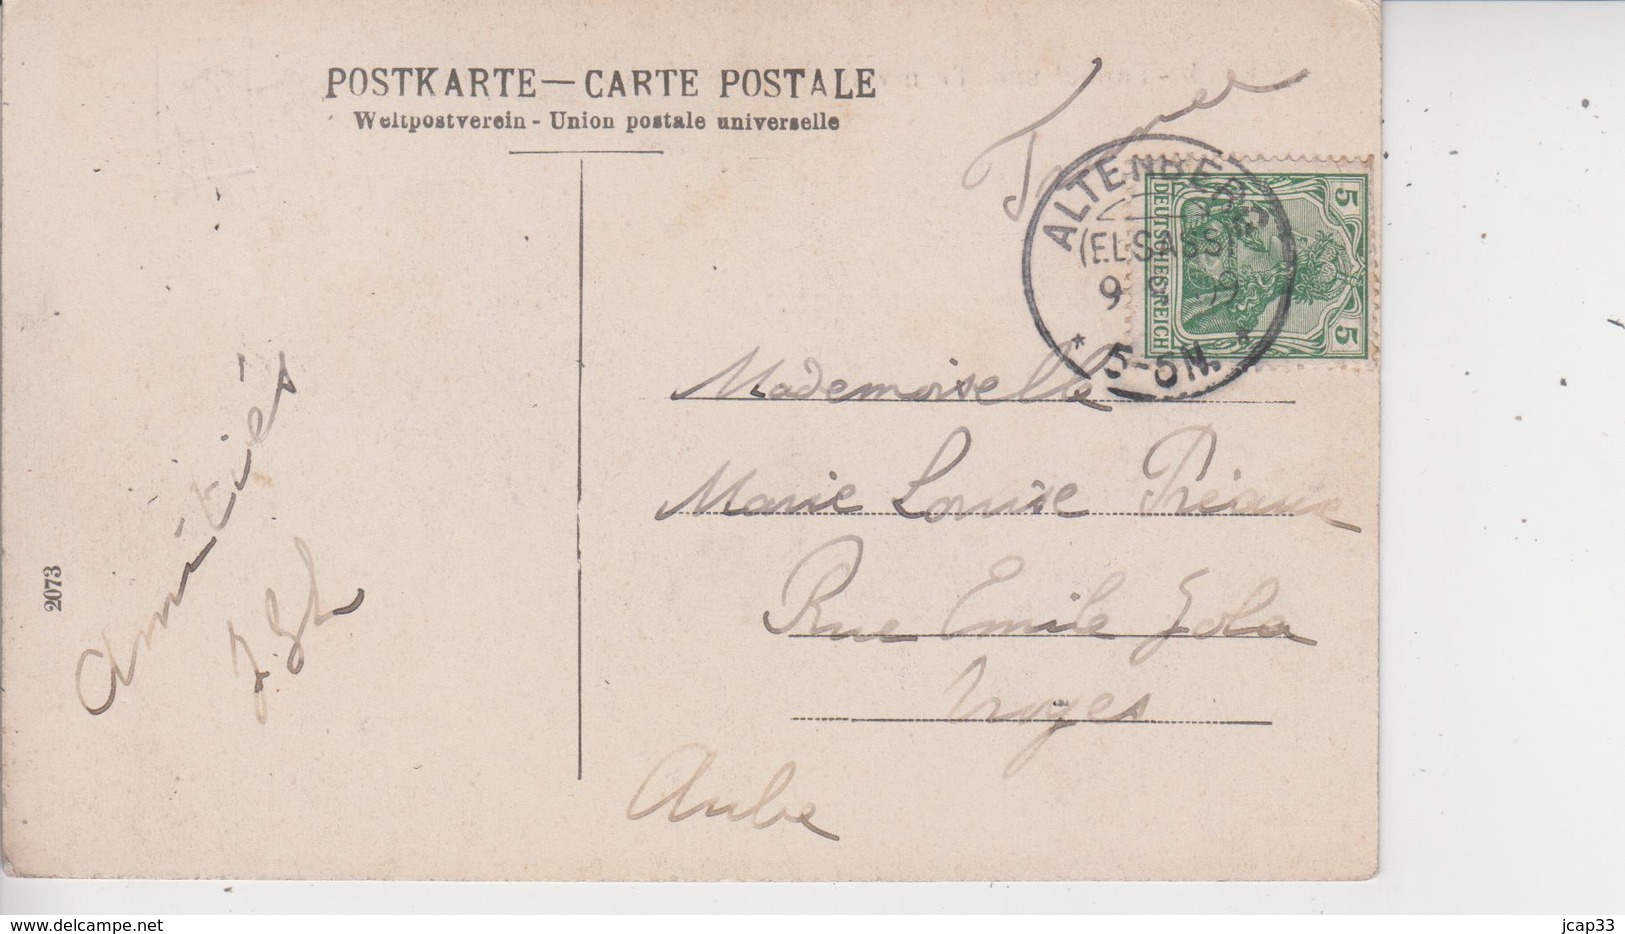 POSTKARTE — CARTE POSTALE
Weltpostverein - Union postale universelle
ALTENBERG
(ELSASS)
5-6N.
5 5
DEUTSCHES REICH
Mademoiselle
Marie Louise
Rue Emile Zola
Troyes
Aube
Amitiés
2073
jcap33